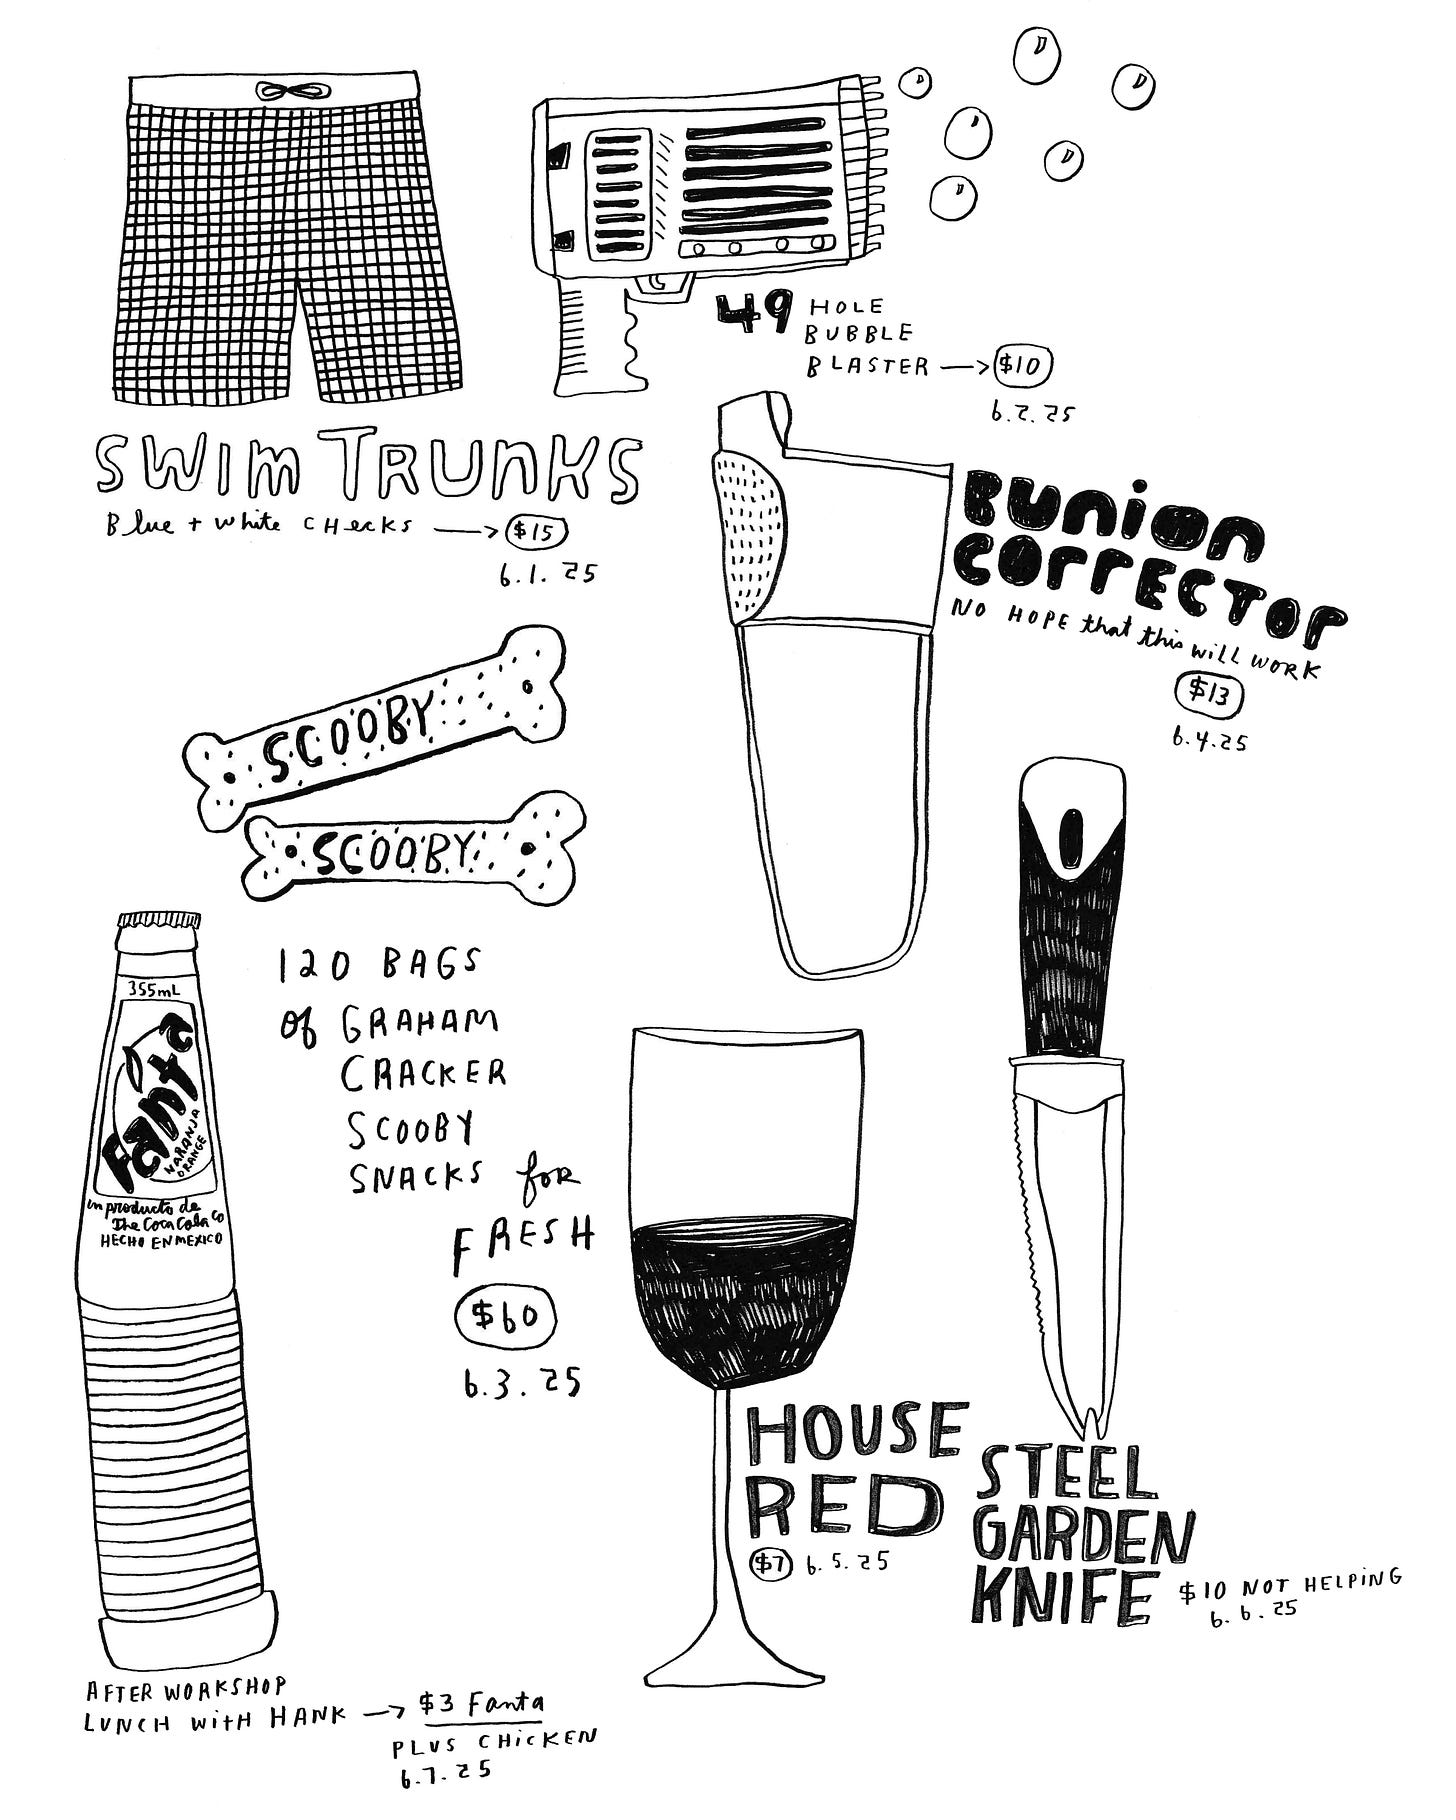 SWIM TRUNKS
Blue + white CHecKs → $15
6.1.25
49 HOLE
BUBBLE
BLASTER → $10
6.2.25
BUNION
CORRECTOR
NO HOPE that this will WORK
$13
6.4.25
SCOOBY
SCOOBY
120 BAGS
of GRAHAM
CRACKER
SCOOBY
SNACKS for
FRESH
$60
6.3.25
355mL
Fanta
NARANJA
ORANGE
un producto de
The Coca Cola Co
HECHO EN MEXICO
HOUSE
RED
$7 6.5.25
STEEL
GARDEN
KNIFE $10 NOT HELPING
6.6.25
AFTER WORKSHOP
LUNCH WitH HANK → $3 Fanta
PLUS CHICKEN
6.7.25